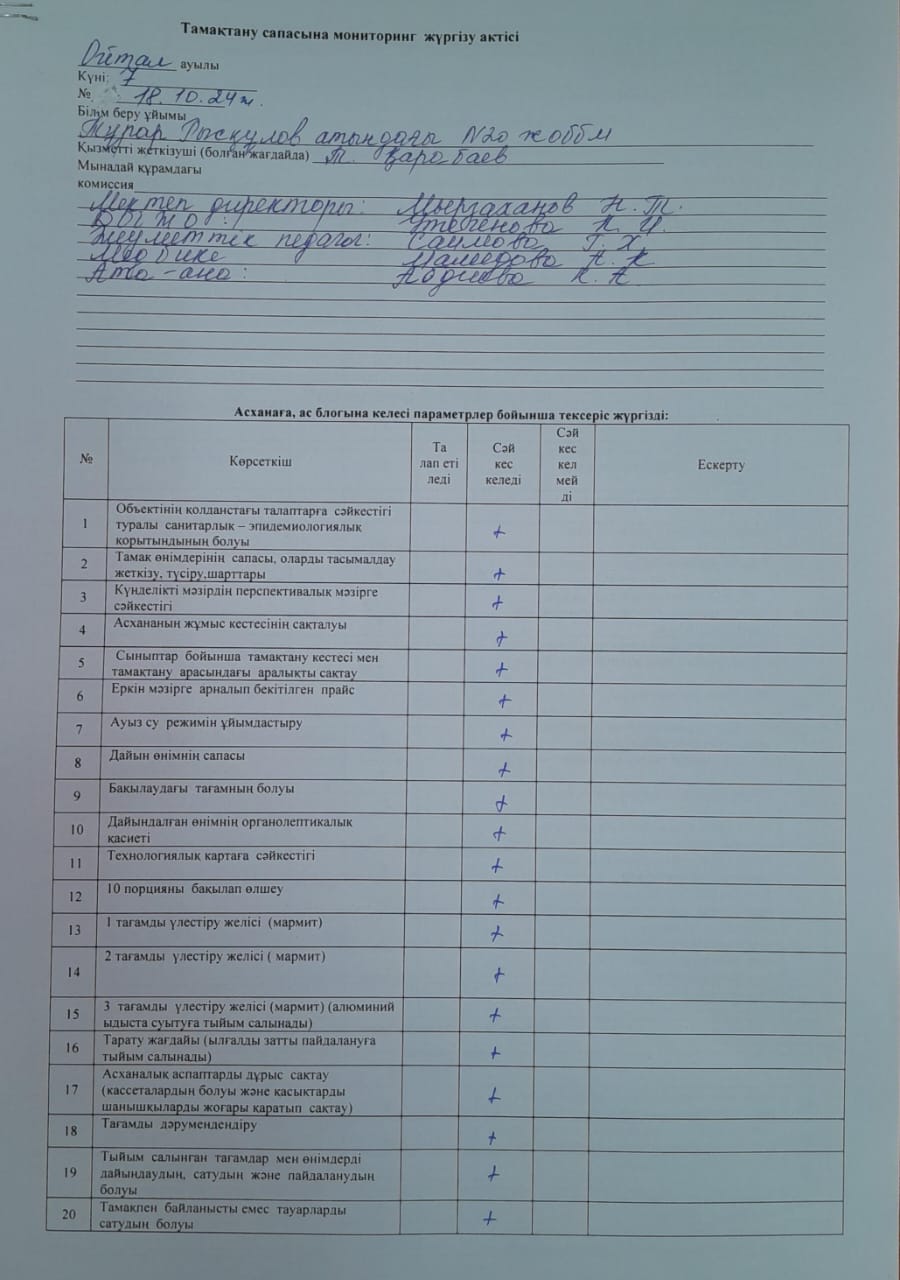 Тамақтану сапасына мониторинг жүргізу актісі
Ойтал ауылы
Күні: 7
№ 18.10.24ж.
Білім беру ұйымы
Тұрар Рысқұлов атындағы N20 жоббм
Қызметті жеткізуші (болған жағдайда) Т. Қарабаев
Мынадай құрамдағы
комиссия
Мектеп директоры: Мырзаханов Н. Т.
Утегенова К.
Әлеуметтік педагог: Саимова Г. Х.
Медбике Мамедова А. К
Ата-ана: Абдиева К. А.
Асханаға, ас блогына келесі параметрлер бойынша тексеріс жүргізді:
№ Көрсеткіш Та Сәй Сәй Ескерту
лап еті кес кес
леді келеді кел
мей
ді
1 Объектінің қолданстағы талаптарға сәйкестігі
туралы санитарлық – эпидемиологиялық +
қорытындының болуы
2 Тамақ өнімдерінің сапасы, оларды тасымалдау
жеткізу, түсіру,шарттары +
3 Күнделікті мәзірдің перспективалық мәзірге +
сәйкестігі
4 Асхананың жұмыс кестесінің сақталуы +
5 Сыныптар бойынша тамақтану кестесі мен +
тамақтану арасындағы аралықты сақтау
6 Еркін мәзірге арналып бекітілген прайс +
7 Ауыз су режимін ұйымдастыру +
8 Дайын өнімнің сапасы +
9 Бақылаудағы тағамның болуы +
10 Дайындалған өнімнің органолептикалық +
қасиеті
11 Технологиялық картаға сәйкестігі +
12 10 порцияны бақылап өлшеу +
13 1 тағамды үлестіру желісі (мармит) +
14 2 тағамды үлестіру желісі ( мармит) +
15 3 тағамды үлестіру желісі (мармит) (алюминий +
ыдыста суытуға тыйым салынады)
16 Тарату жағдайы (ылғалды затты пайдалануға +
тыйым салынады)
17 Асханалық аспаптарды дұрыс сақтау
(кассеталардың болуы және қасықтарды +
шанышқыларды жоғары қаратып сақтау)
18 Тағамды дәрумендендіру +
19 Тыйым салынған тағамдар мен өнімдерді
дайындаудың, сатудың және пайдаланудың +
болуы
20 Тамақпен байланысты емес тауарларды +
сатудың болуы